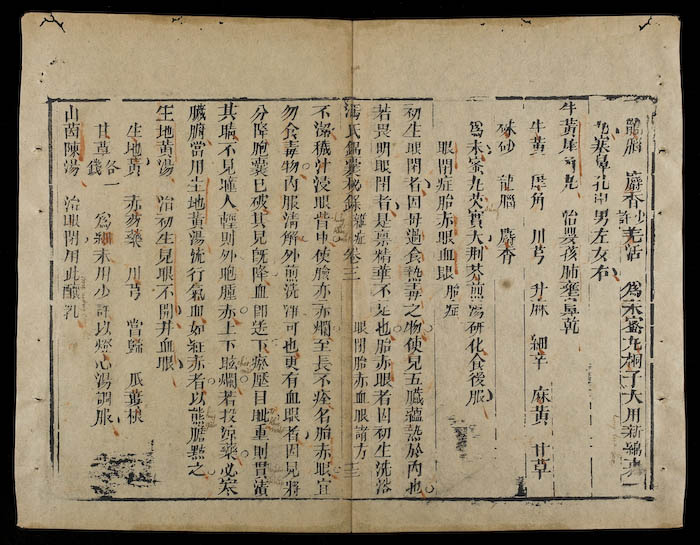 龍腦 麝香少許 羌活 為末蜜丸梧子大用新綿裹一
丸塞鼻孔中男左女右
牛黃犀角丸 治嬰孩肺壅鼻乾
牛黃 犀角 川芎 升麻 細辛 麻黃 甘草
硃砂 龍腦 麝香
為末蜜丸芡實大荊芥煎湯研化食後服
眼閉症胎赤眼血眼 胎症
初生眼閉者因母過食熱毒之物使兒五臟蘊熱於內也
若畏明眼閉者是稟精華不足也胎赤眼者因初生洗浴
馮氏錦囊秘錄 雜症 卷三 眼閉胎赤血眼諸方 三
不潔穢汁浸眼眥中使瞼亦赤爛至長不瘥名胎赤眼宜
勿食毒物內服清解外煎洗靜可也更有血眼者因兒將
分降胞囊已破其兒既降血即送下瘀壓目眦重則貫漬
其瞞不見瞳人輕則外胞腫赤上下眩爛若投涼藥必寒
臟腑當用生地黃湯流行氣血如紅赤者以熊膽點之
生地黃湯 治初生兒眼不開并血眼
生地黃 赤芍藥 川芎 當歸 瓜蔞根
甘草各一錢 為細末用少許以燈心湯調服
山茵陳湯 治眼閉用此釀乳